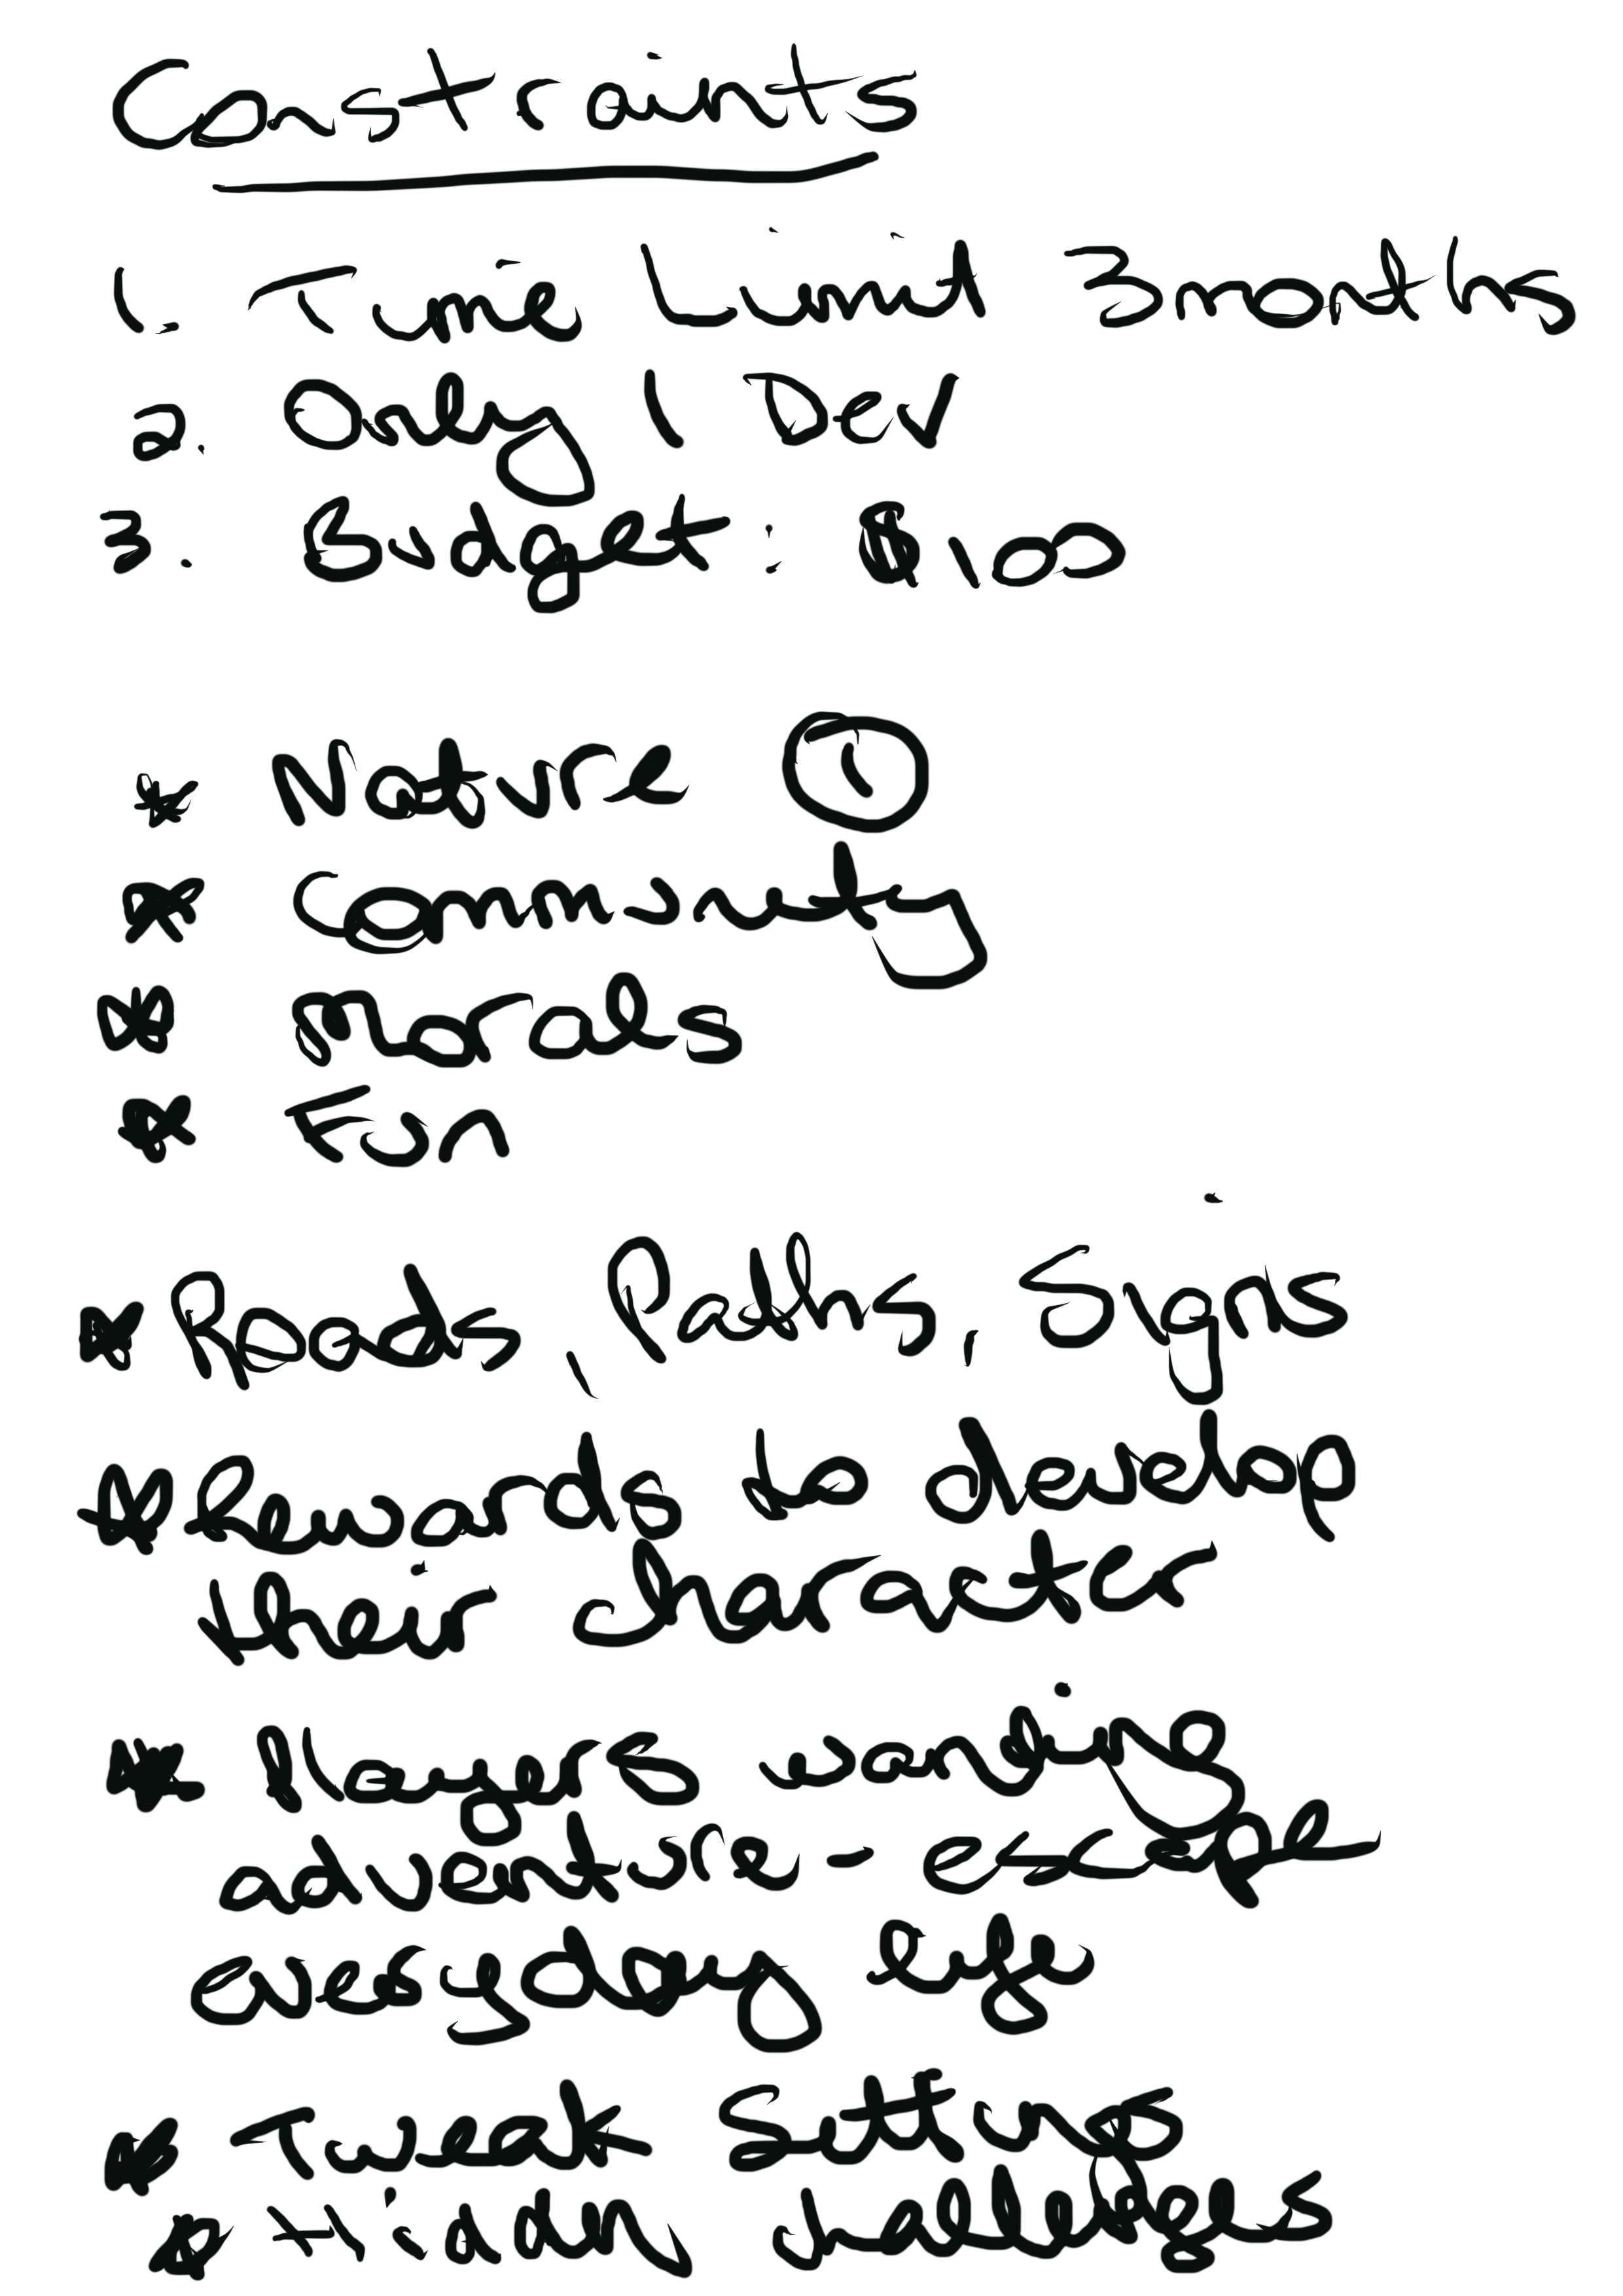 Constraints
1. Time Limit 3 months
2. Only 1 Dev
3. Budget: $100
* Nature ①
* Community
* Morals
* Fun
* Roads, Paths, Signs
* Rewards to develop
their character
* Players wanting
adventure - escape
everyday life
* Tweak Settings
* Hidden challenges